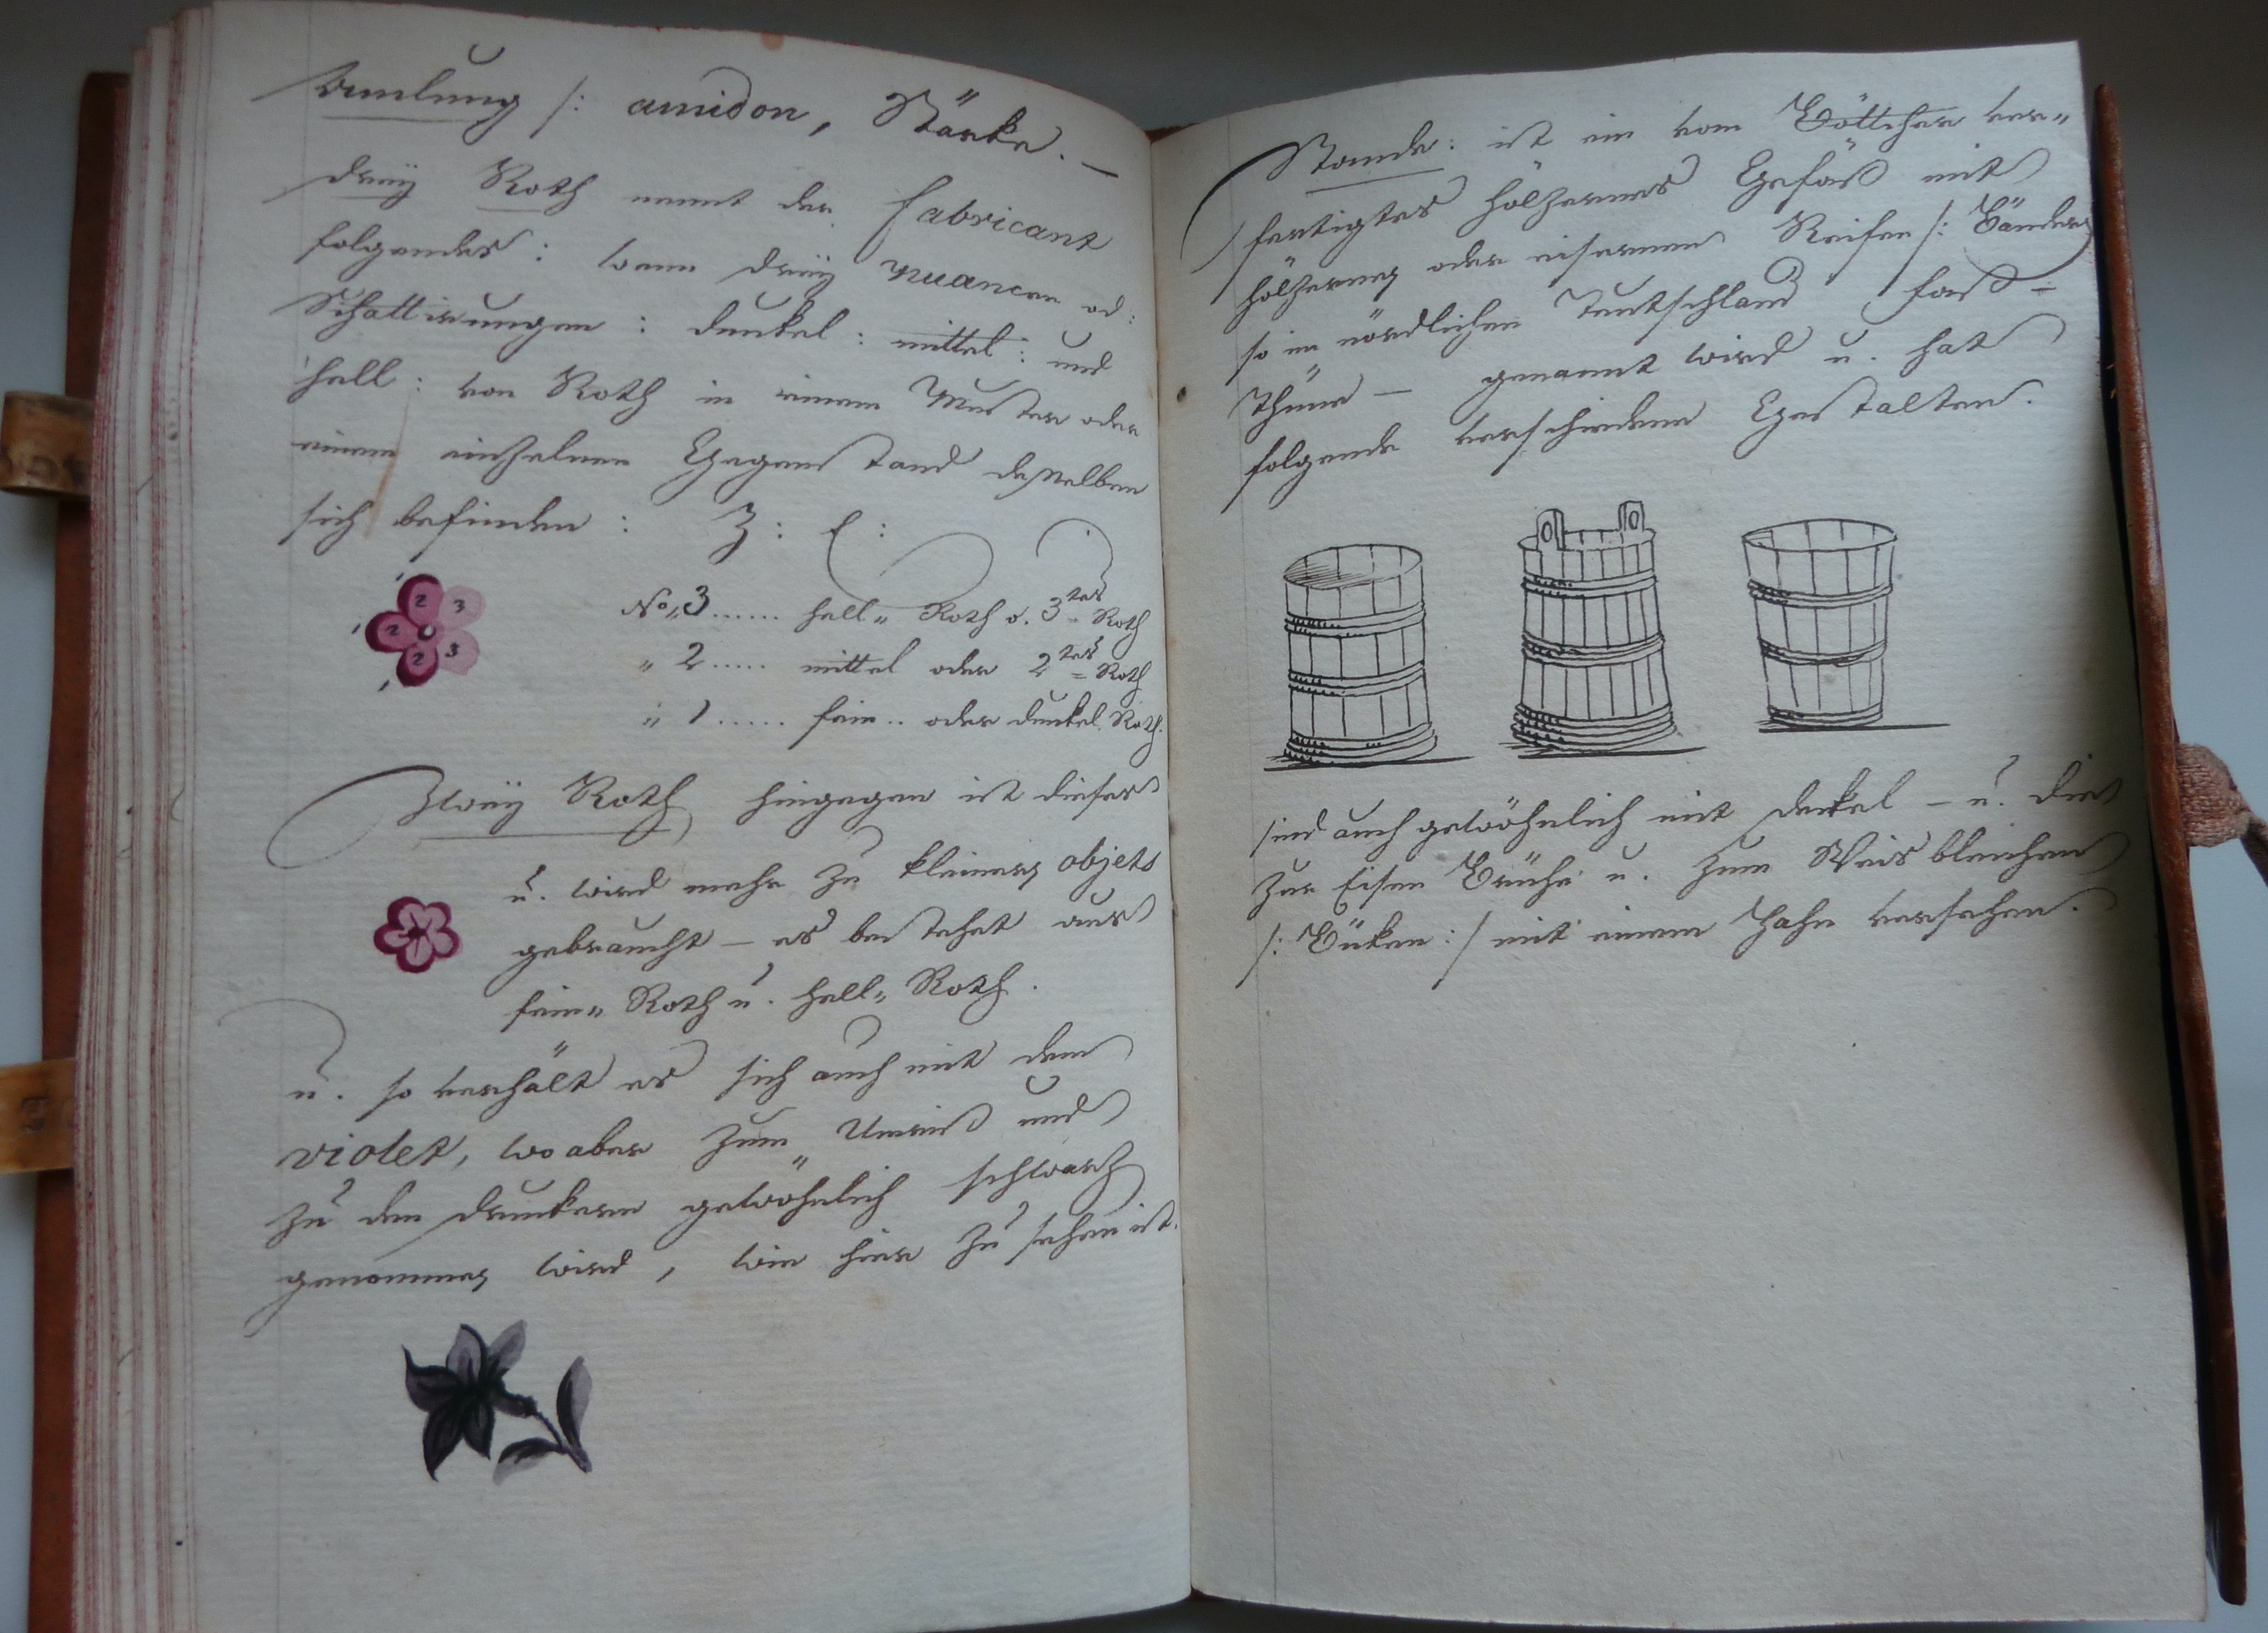 Amlung /: amidon, Stärke. —
Dreÿ Roth nennt der fabricant
folgendes: wenn dreÿ nuancen od:
Schattirungen: dunkel: mittel: und
hell: von Roth in einem Muster oder
einem einzelnen Gegenstand desselben
sich befinden: Z: E:
No„ 3...... hell„ Roth o. 3tes Roth
„ 2..... mittel oder 2tes = Roth
„ 1..... fein.. oder dunkel Roth.
2 3
2
2 3
Zweÿ Roth hingegen ist dieses
u. wird mehr zu kleinen objets
gebraucht — es bestehet aus
fein„ Roth u. hell„ Roth.
u. so verhält es sich auch mit dem
violet, wo aber zum Umriß und
zu den drunkern gewöhnlich schwarz
genommen wird, wie hier zu sehen ist.
Stande: ist ein vom Böttcher ver„
fertigtes hölzernes Gefäß mit
hölzernen oder eisernen Reifen /: Bänder
so im nördlichen Teutschland Faß —
genannt wird u. hat
folgende verschiedene Gestalten.
sind auch gewöhnlich mit dekel — u. die
zur Eisen Brühe u. zum Weis bleichen
/: Büken :/ mit einem Hahn versehen.